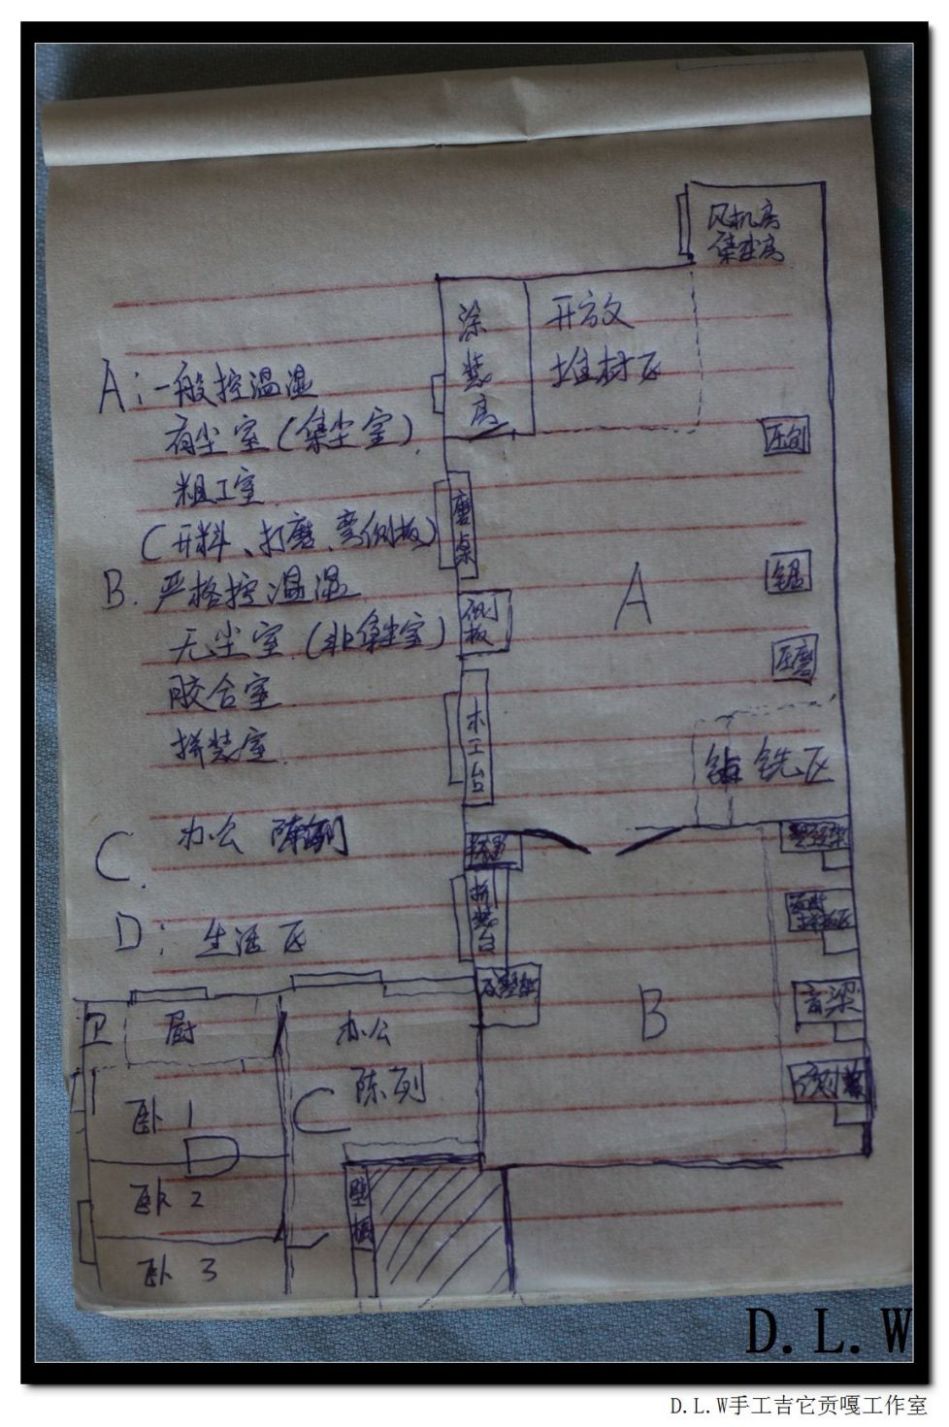 风机房
集尘房
涂装房
开放
堆材区
A：一般控温湿
有尘室（集尘室）
粗工室
（开料、打磨、弯侧板）
B. 严格控温湿
无尘室（非集尘室）
胶合室
拼装室
C. 办公 陈列
D：生活区
压刨
磨桌
侧板
A
锯
压磨
木工台
钻铣区
拼装台
B
音梁
卫
厨
办公
陈列
C
卧1
D
卧2
卧3
壁橱
D.L.W
D.L.W手工吉它贡嘎工作室